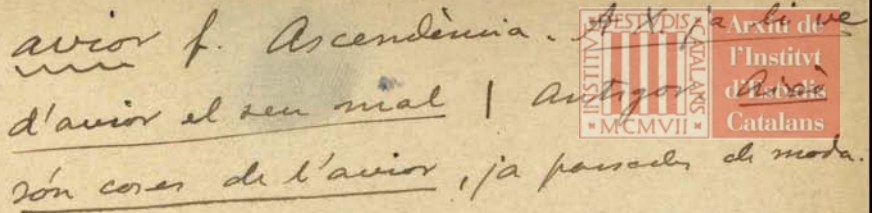 avior f. Ascendència. A X. ja li ve
d'avior el seu mal | antigor Això
són coses de l'avior, ja passades de moda.
INSTITVT D'ESTVDIS CATALANS
MCMVII
Arxiu de
l'Institvt
d'Estudis
Catalans